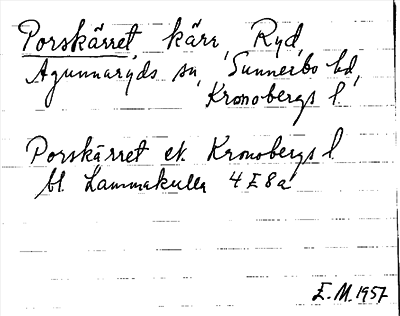 Porskärret, kärr, Ryd,
Agunnaryds sn, Sunnerbo hd,
Kronobergs l.
Porskärret ek. Kronobergs l.
bl. Lammakulla 4E8a
E.M. 1957